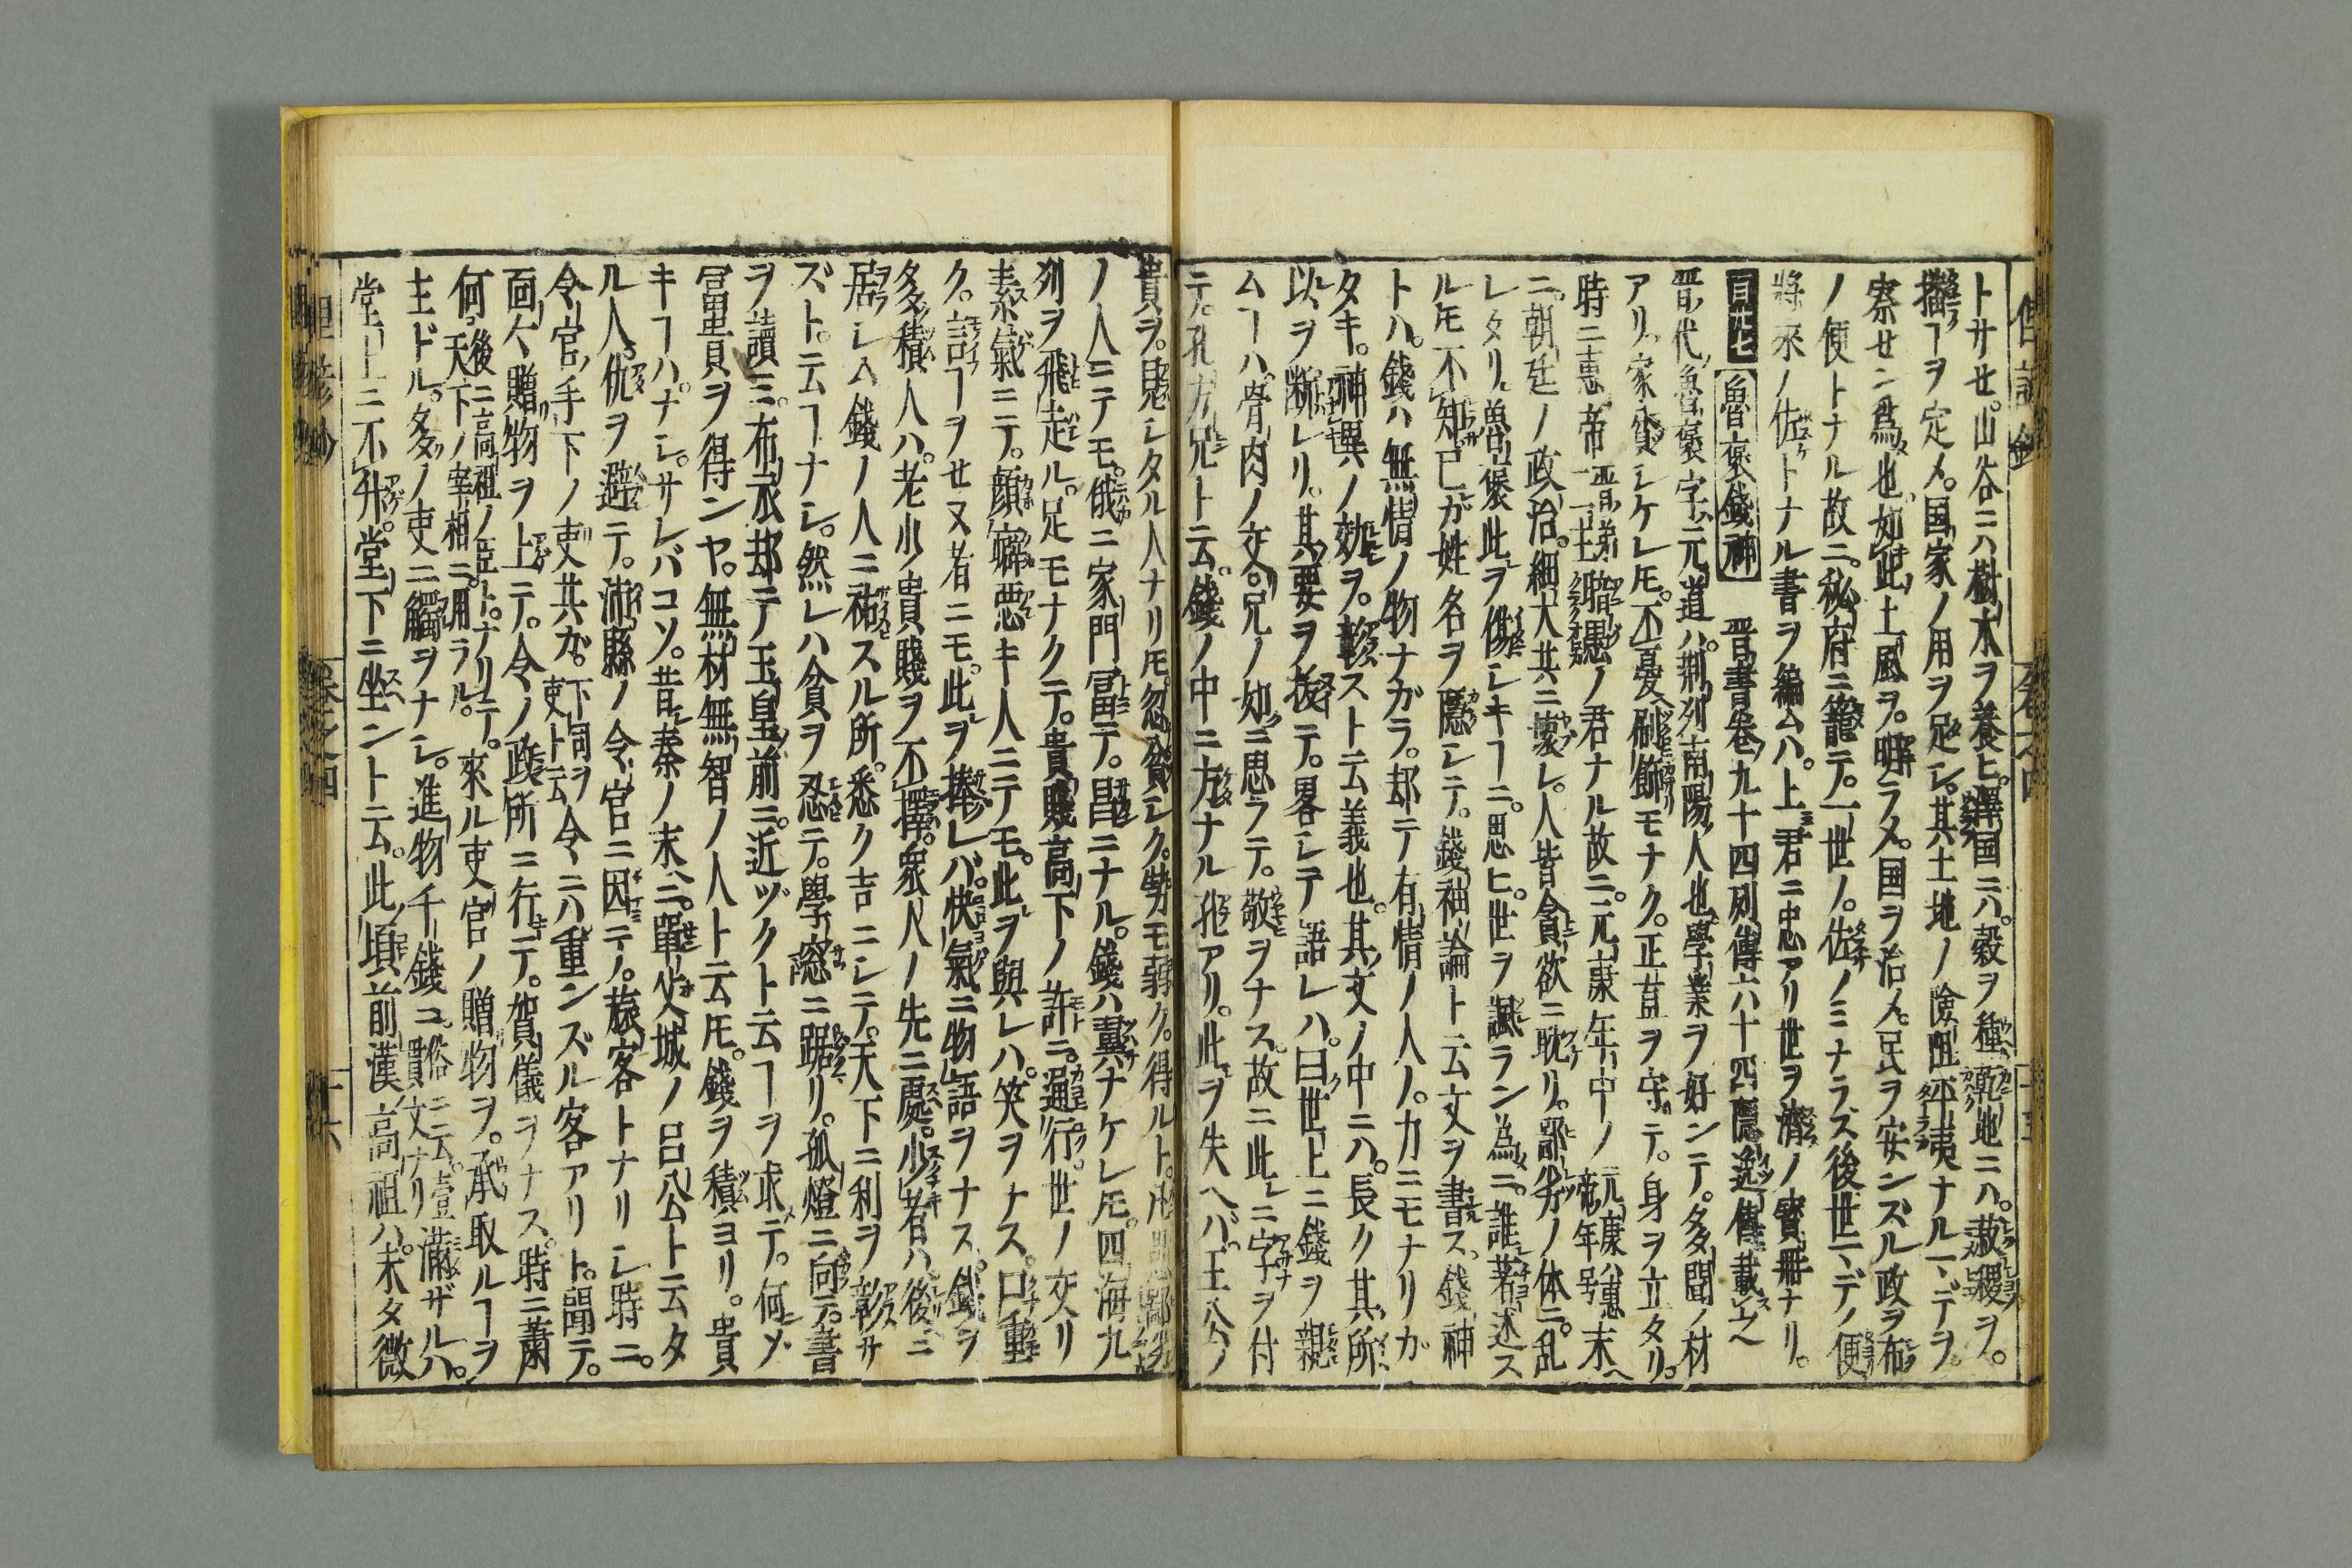 トサセ。山谷ニハ樹木ヲ養ヒ。澤国ニハ。穀ヲ種。乾地ニハ。菽稷ヲ。
擂ヿヲ定メ。国家ノ用ヲ足シ。其土地ノ険阻平夷ナルヿヽデヲ。
察センガ爲也。如此土風ヲ。明ラメ。国ヲ治メ。民ヲ安ンズル政ヲ布
ノ便トナル故ニ。秘府ニ籠テ。一世ノ。佐ノミナラズ後世ヽデノ便
將來ノ佐トナル書ヲ編ムハ。上君ニ忠アリ世ヲ濟ノ寳冊ナリ。
魯褒錢神 晋書卷九十四列傳六十四隱逸傳載之
晋ノ代魯褒字ハ元道ハ。荊列南陽ノ人也。學業ヲ好ンテ。多聞ノ材
アリ。家貧シケレ𪜈。不憂刷飾モナク。正直ヲ守テ。身ヲ立タリ。
時ニ惠帝晋第二主聰愚ノ君ナル故ニ。元康年中ノ元康ハ惠帝年号末
ニ。朝廷ノ政治。細大其ニ壞レ。人皆貪欲ニ耽リ。鄙劣ノ体ニ。乱
レタリ。魯褒此ヲ傷シキヿニ。思ヒ。世ヲ諷ラン為ニ。誰著述ス
ル𪜈不知已ガ姓名ヲ隱シテ。錢神論ト云文ヲ書ス。錢神
トハ。錢ハ無情ノ物ナガラ。却テ有情ノ人ノ。力ニモナリガ
タキ。神異ノ効ヲ。彰スト云義也。其文ノ中ニハ。長ク其所
以ヲ斷レリ。其要ヲ抜テ。畧シテ語レハ。曰世上ニ錢ヲ親
ムヿハ。骨肉ノ交。兄ノ如ニ思ラテ。敬ヲナス。故ニ此ニ字ヲ付
テ。孔方兄ト云。錢ノ中ニ方ナル孔アリ。此ヲ失ヘバ。王公ノ
貴ヲ。見レタル人ナリ𪜈。忽貧シク。勢モ弱ク。得ルト。
ノ人ニテモ。俄ニ家門冨テ。昌ニナル。錢ハ翼ナケレ𪜈。四海九
列ヲ飛走ル。足モナクテ。貴賤高下ノ許ニ。通行。世ノ交リ
素氣ニテ。顔癖悪キ人ニテモ。此ヲ與レハ。笑ヲナス。口重
ク。言ヿヲセヌ者ニモ。此ヲ捧レバ。快氣ニ物語ヲナス。錢ヲ
多積人ハ。老少貴賤ヲ不擇。衆人ノ先ニ處。少者ハ。後ニ
居レム錢ノ人ニ祐スル所。悉ク吉ニシテ。天下ニ利ヲ彰サ
ズト。云ヿナシ。然レハ貧ヲ忍テ。學窓ニ踞リ。孤燈ニ向テ。書
ヲ讀ミ。布衣却テ玉皇前ニ。近ヅクト云ヿヲ求テ。何〆
冨貴ヲ得ンヤ。無材無智ノ人ト云𪜈。錢ヲ積ヨリ。貴
キヿハ。ナシ。サレバコソ。昔秦ノ末ニ。單父城ノ呂公ト云タ
ル人。仇ヲ避テ。沛縣ノ令官ニ因テ。旅客トナリシ時ニ。
令官ノ手下ノ吏共ガ。下司ヲ吏ト云令ニハ重ンズル客アリト。聞テ。
面々贈物ヲ上ニテ。令ノ政所ニ行テ。賀儀ヲナス。時ニ蕭
何。後ニ高祖ノ臣ト。ナリテ。天下ノ宰相ニ。用ラル。來ル吏官ノ贈物ヲ。承取ルヿヲ
主ドル。多ノ吏ニ觸ヲナシ。進物千錢俗ニ云。壹貫文ナリコ。滿ザルハ。
堂上ニ不升。堂下ニ坐ントト云。此頃前漢ノ高祖ハ。未タ微
卷之四